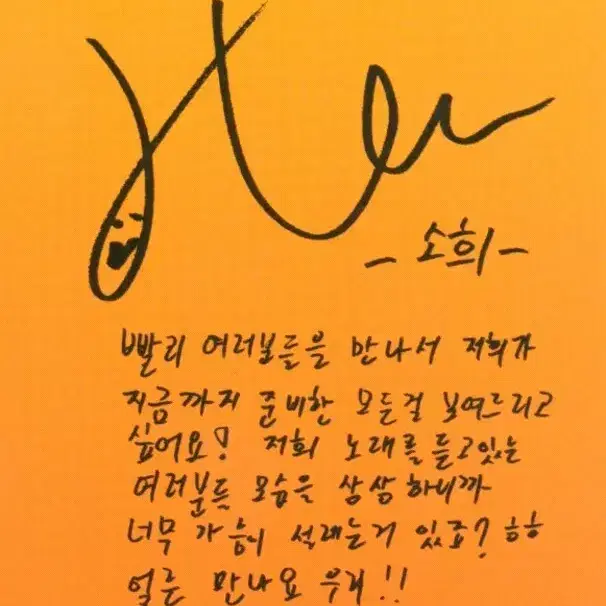 - 소희 -
빨리 여러분들을 만나서 저희가
지금까지 준비한 모든걸 보여드리고
싶어요! 저희 노래를 듣고있는
여러분들 모습을 상상하니까
너무 가슴이 설레는거 있죠? ㅎㅎ
얼른 만나요 우리!!